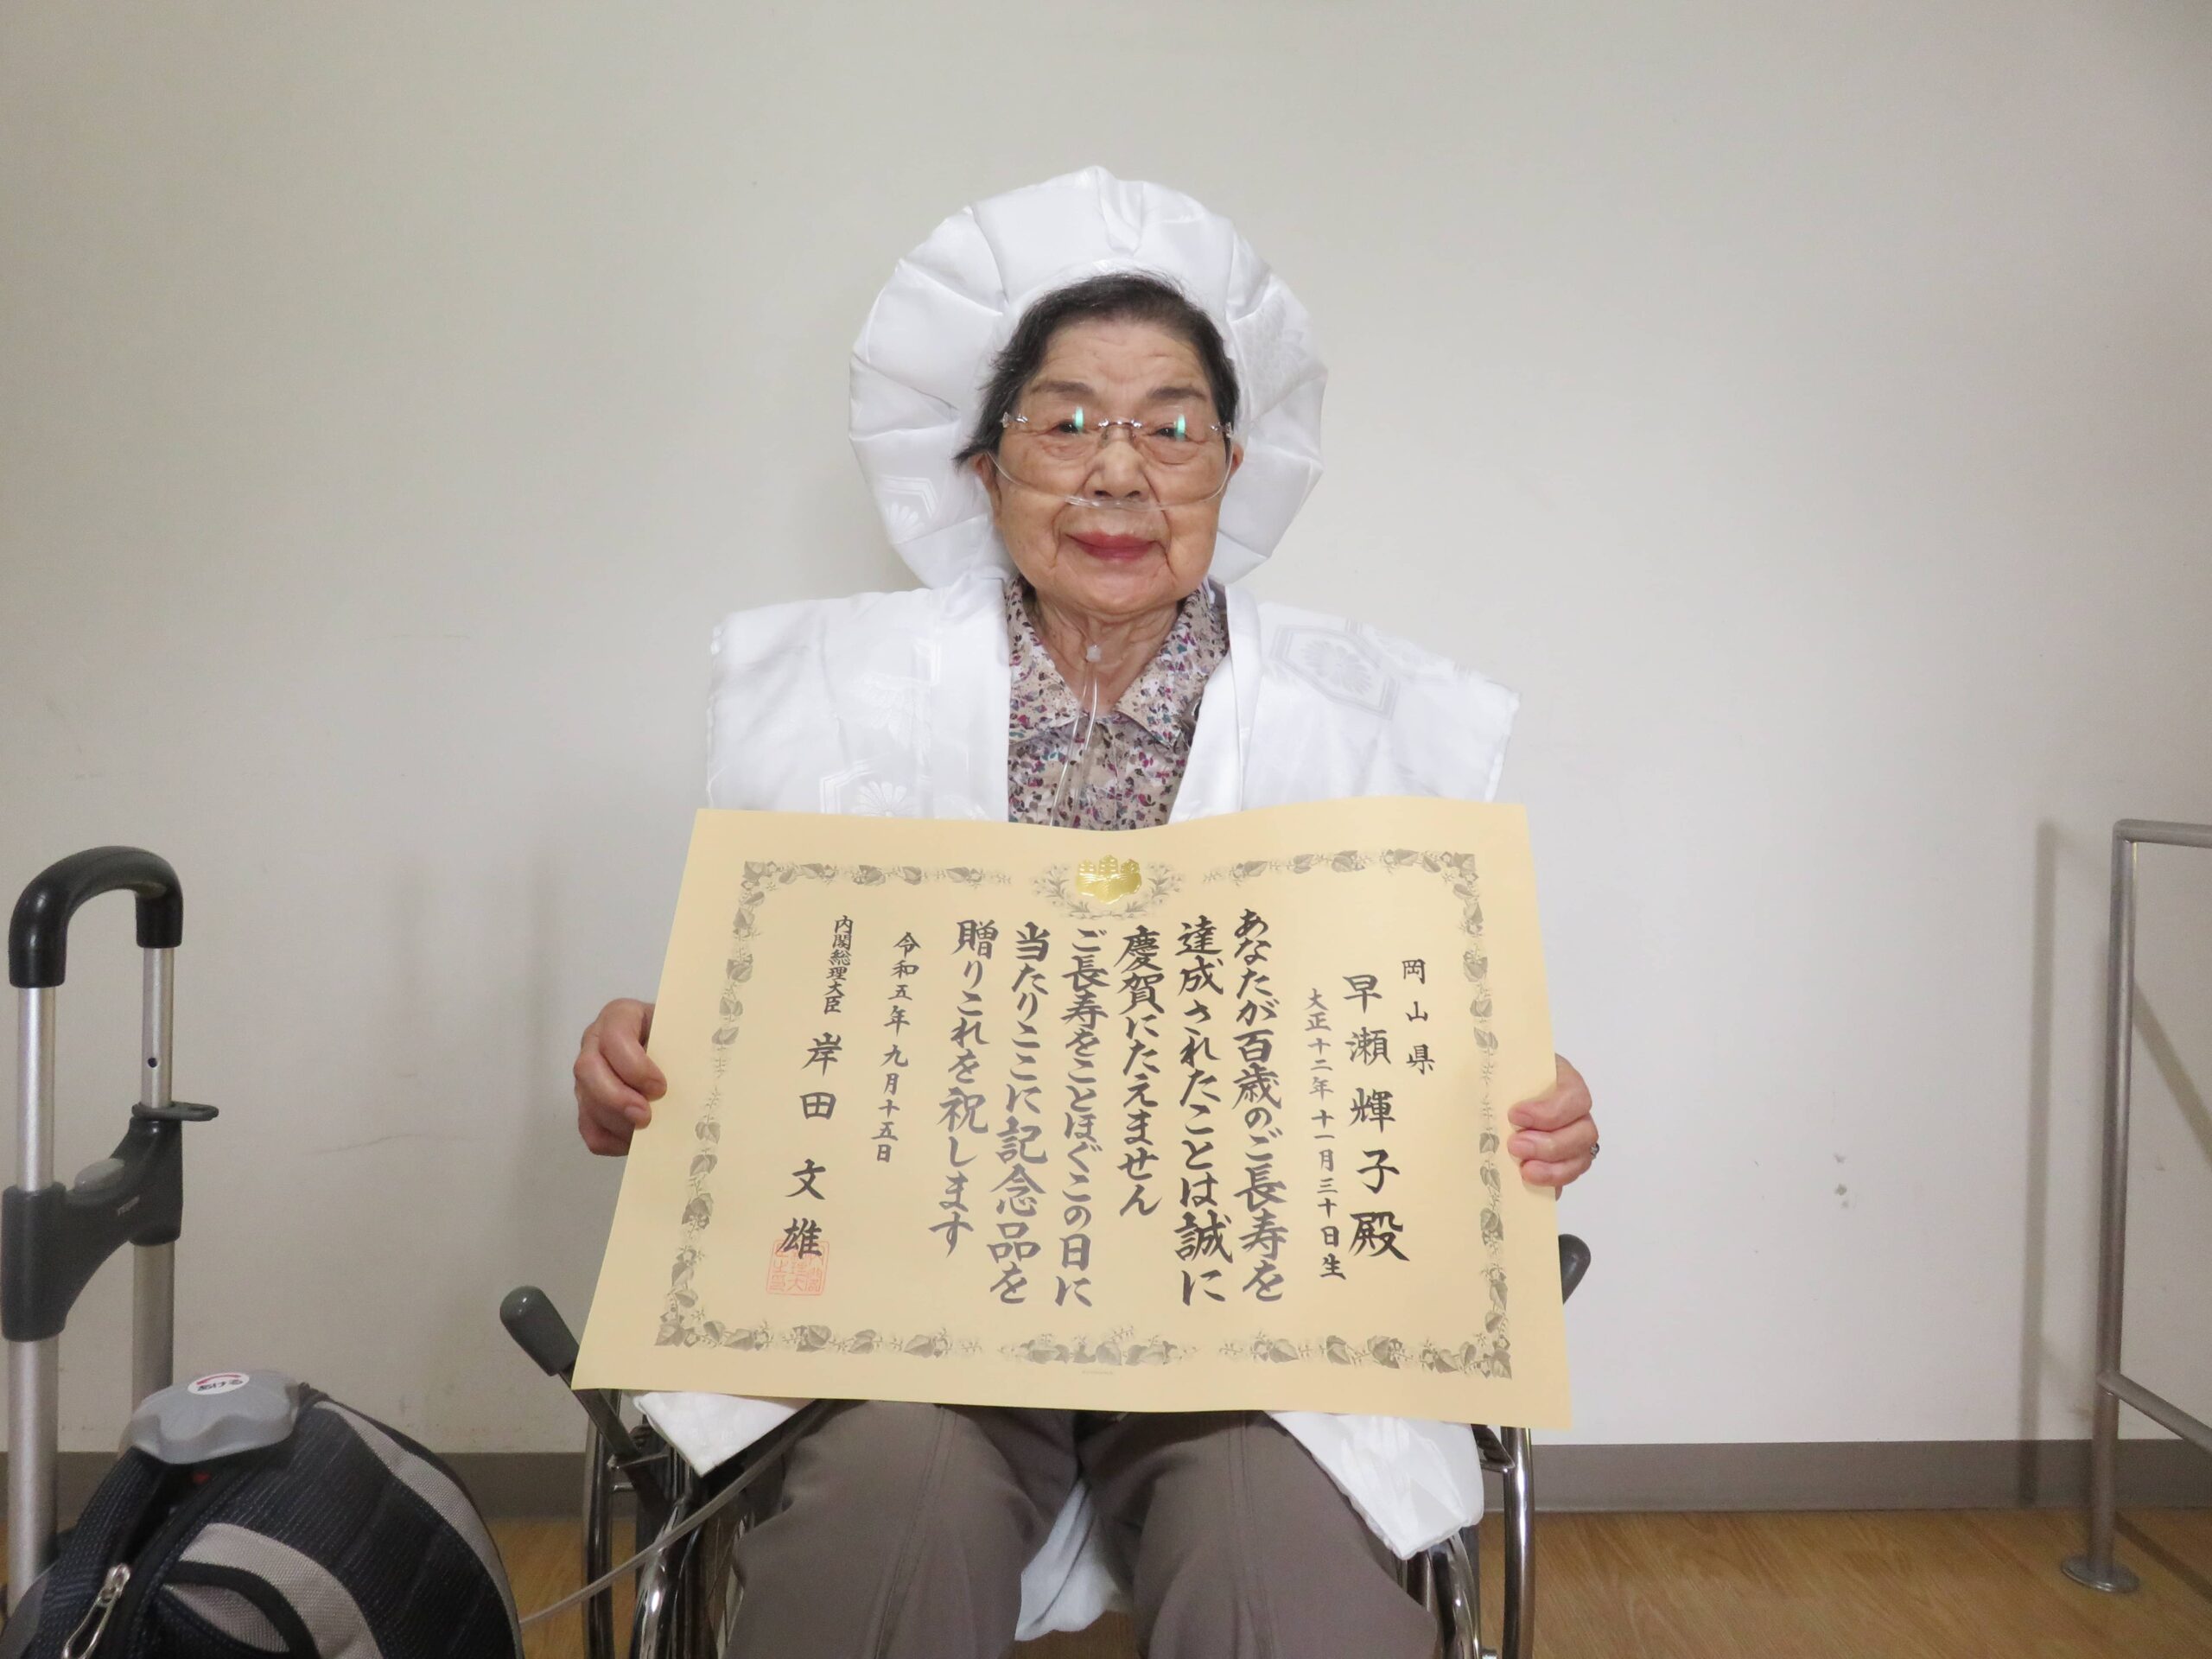 岡山県
早瀬輝子殿
大正十二年十一月三十日生
あなたが百歳のご長寿を
達成されたことは誠に
慶賀にたえません
ご長寿をことほぐこの日に
当たりここに記念品を
贈りこれを祝します
令和五年九月十五日
内閣総理大臣 岸田文雄
あける